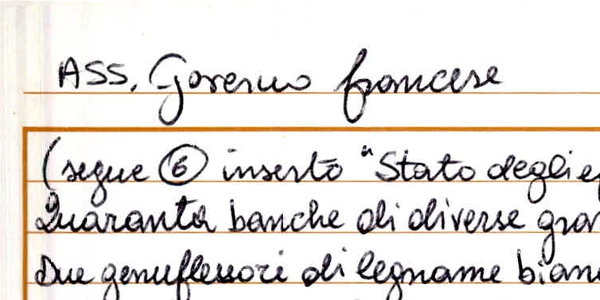 ASS. Governo francese
(segue 6 inserto "Stato degli
Quaranta banche di diverse
Due genuflessori di legname